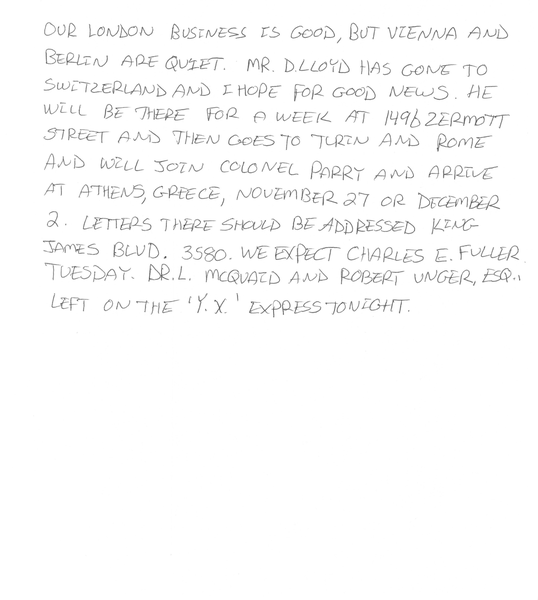 OUR LONDON BUSINESS IS GOOD, BUT VIENNA AND
BERLIN ARE QUIET. MR. D.LLOYD HAS GONE TO
SWITZERLAND AND I HOPE FOR GOOD NEWS. HE
WILL BE THERE FOR A WEEK AT 1496 ZERMOTT
STREET AND THEN GOES TO TURIN AND ROME
AND WILL JOIN COLONEL PARRY AND ARRIVE
AT ATHENS, GREECE, NOVEMBER 27 OR DECEMBER
2. LETTERS THERE SHOULD BE ADDRESSED KING
JAMES BLVD. 3580. WE EXPECT CHARLES E. FULLER
TUESDAY. DR.L. MCQUAID AND ROBERT UNGER, ESQ.,
LEFT ON THE 'Y.X.' EXPRESS TONIGHT.